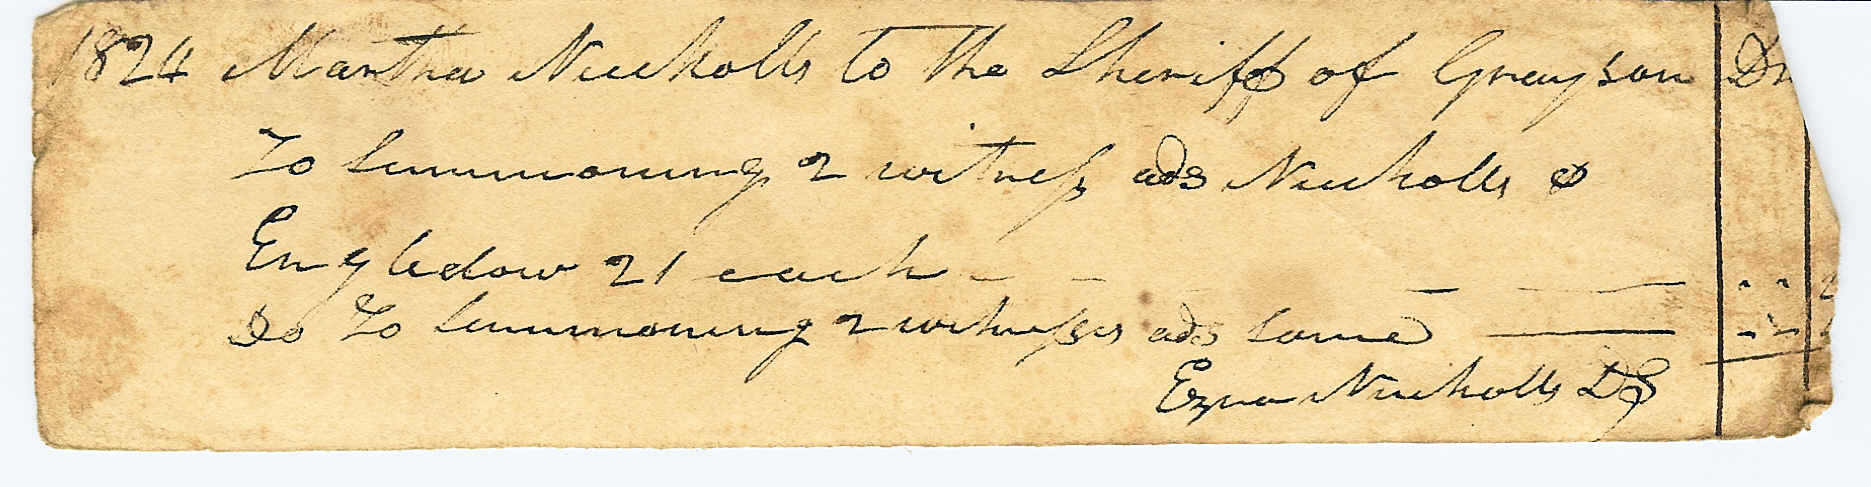 1824 Martha Nuckolls to the Sheriff of Grayson Dr
To Summoning 2 witness ads Nuckolls &
Engledow 21 each - - - - -
Do To Summoning 2 witnesses ads same —
Ezra Nuckolls DS